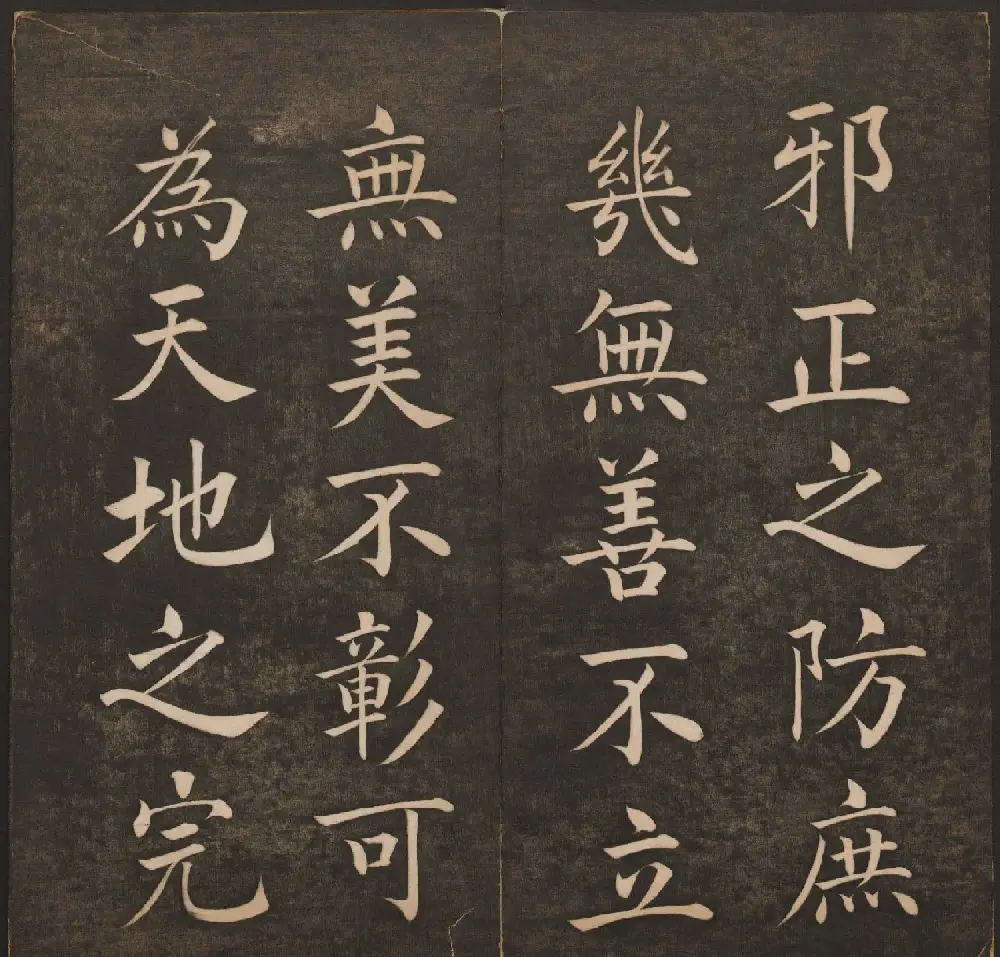 邪正之防庶
幾無善不立
無美不彰可
為天地之完